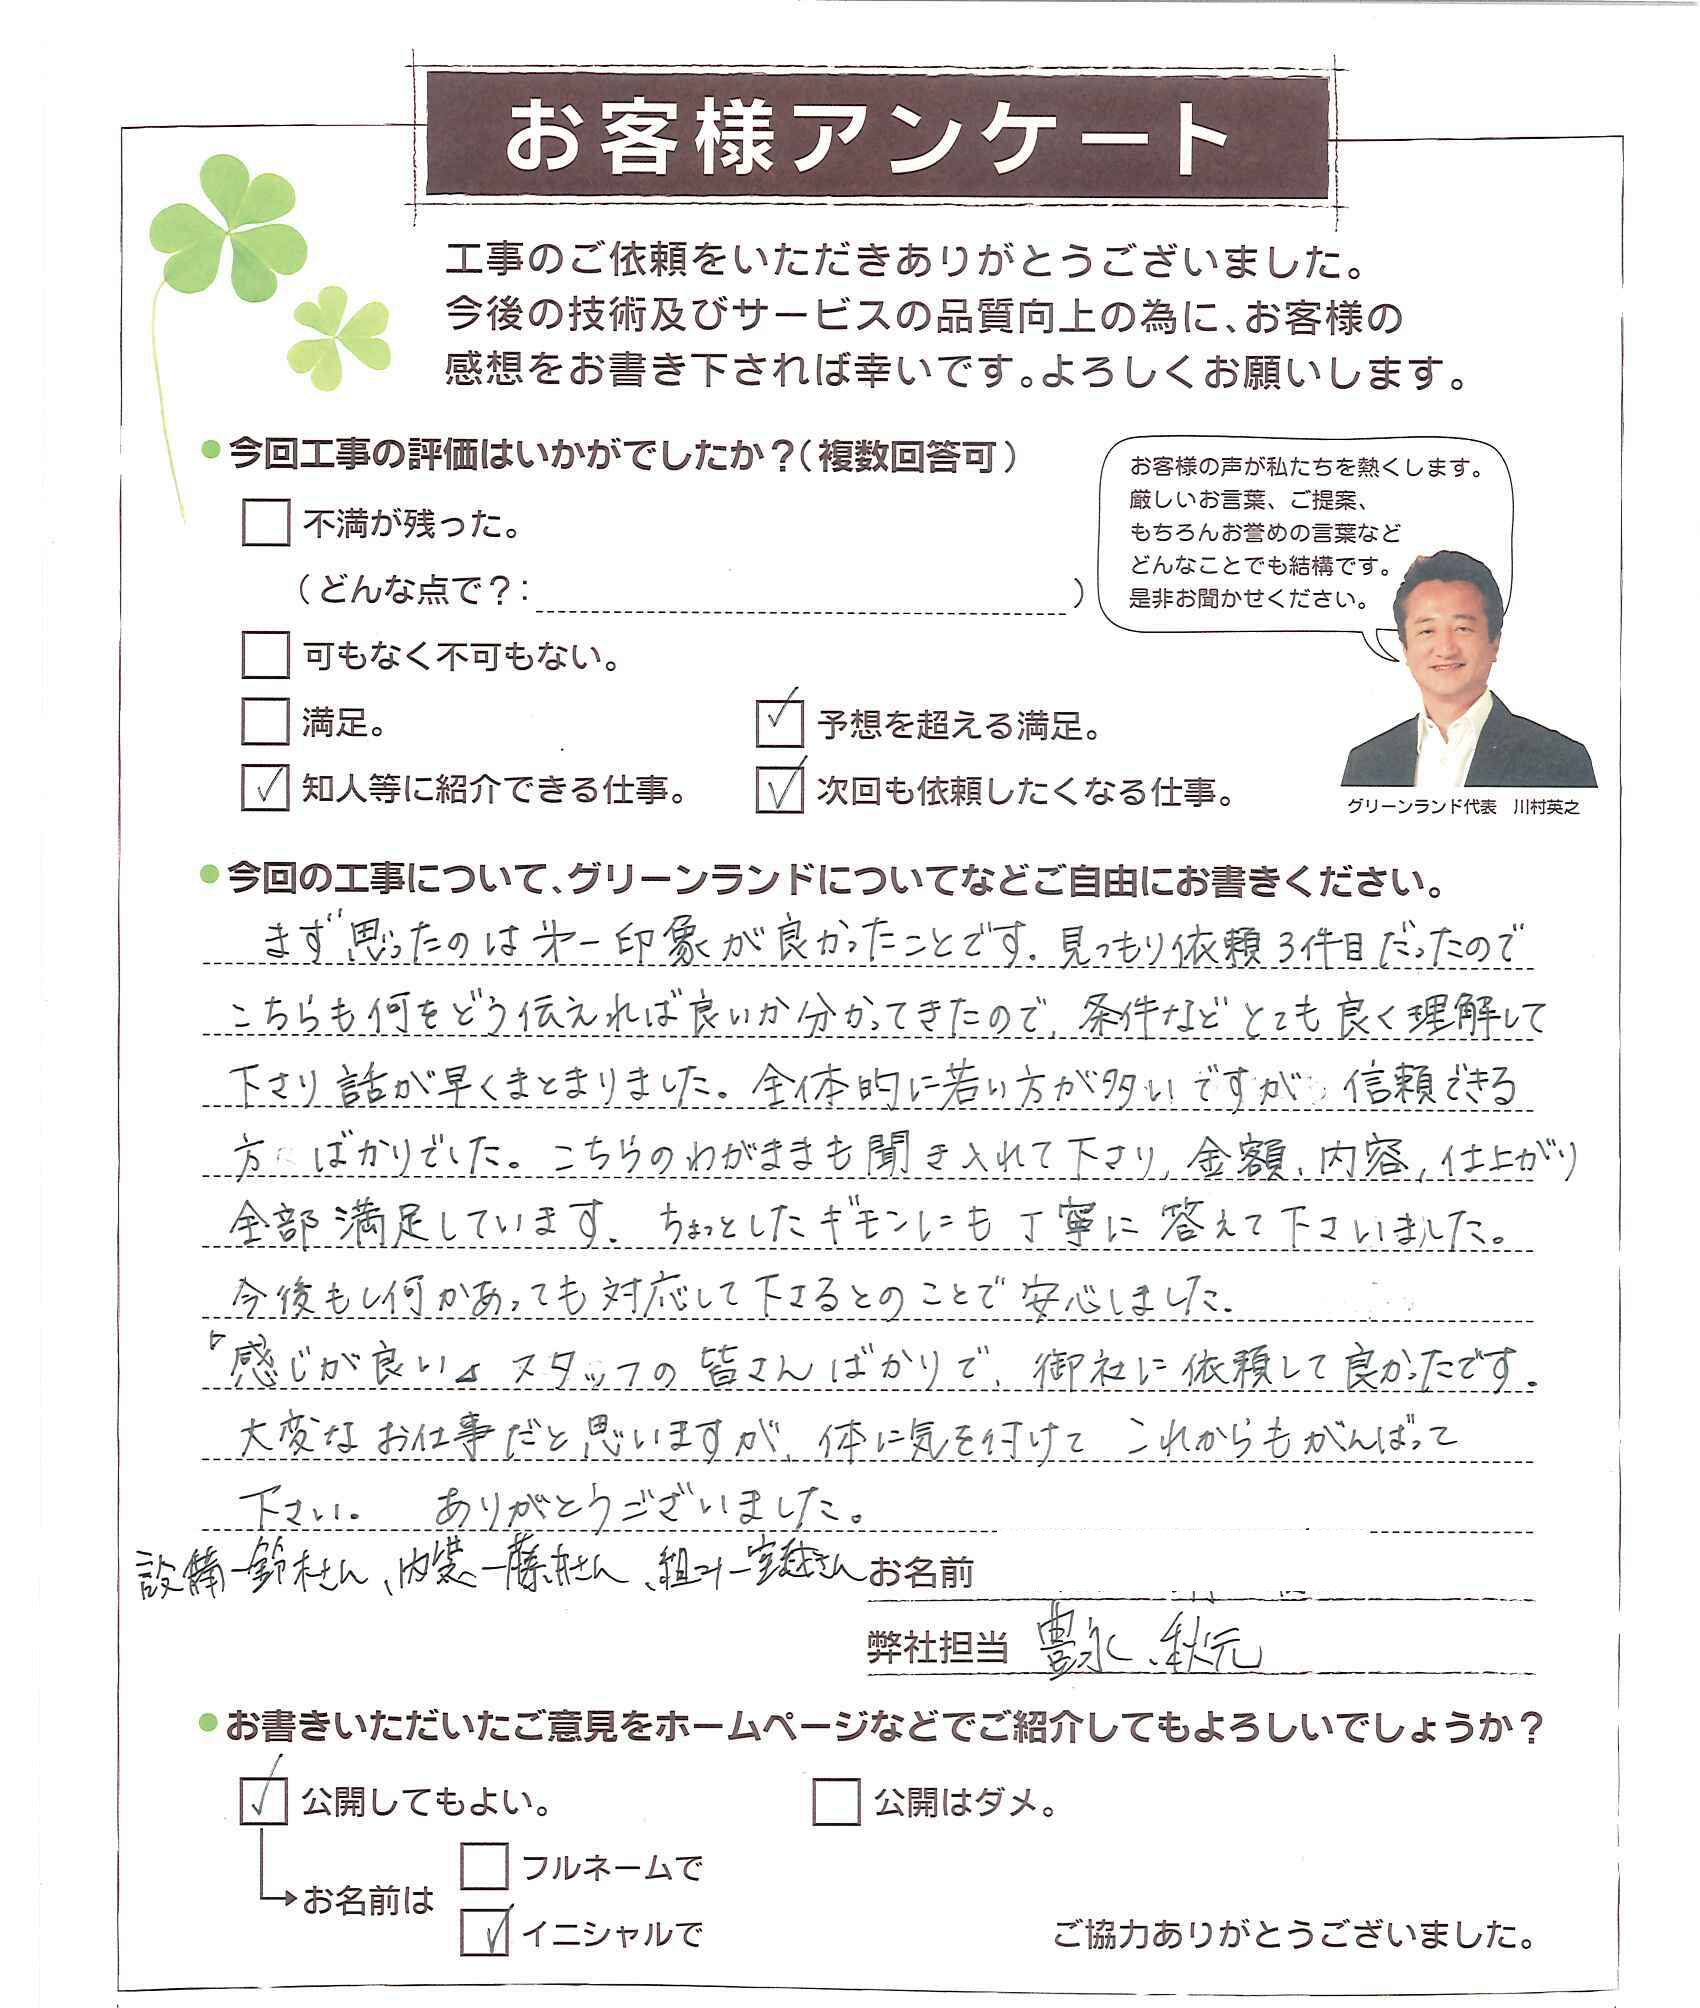 お客様アンケート
工事のご依頼をいただきありがとうございました。
今後の技術及びサービスの品質向上の為に、お客様の
感想をお書き下されば幸いです。よろしくお願いします。
今回工事の評価はいかがでしたか？（複数回答可）
不満が残った。
（どんな点で？：　）
可もなく不可もない。
満足。
予想を超える満足。
知人等に紹介できる仕事。
次回も依頼したくなる仕事。
お客様の声が私たちを熱くします。
厳しいお言葉、ご提案、
もちろんお誉めの言葉など
どんなことでも結構です。
是非お聞かせください。
グリーンランド代表　川村英之
今回の工事について、グリーンランドについてなどご自由にお書きください。
まず思ったのは㐧一印象が良かったことです。見つもり依頼3件目だったので
こちらも何をどう伝えれば良いか分かってきたので、条件などとても良く理解して
下さり話が早くまとまりました。全体的に若い方が多いですが信頼できる
方ばかりでした。こちらのわがままも聞き入れて下さり、金額、内容、仕上がり
全部満足しています。ちょっとしたギモンにも丁寧に答えて下さいました。
今後もし何かあっても対応して下さるとのことで安心しました。
『感じが良い』スタッフの皆さんばかりで、御社に依頼して良かったです。
大変なお仕事だと思いますが、体に気を付けてこれからもがんばって
下さい。　ありがとうございました。
設備－鈴木さん、内装－藤本さん、
お名前
弊社担当　豊永、秋元
お書きいただいたご意見をホームページなどでご紹介してもよろしいでしょうか？
公開してもよい。
公開はダメ。
お名前は
フルネームで
イニシャルで
ご協力ありがとうございました。